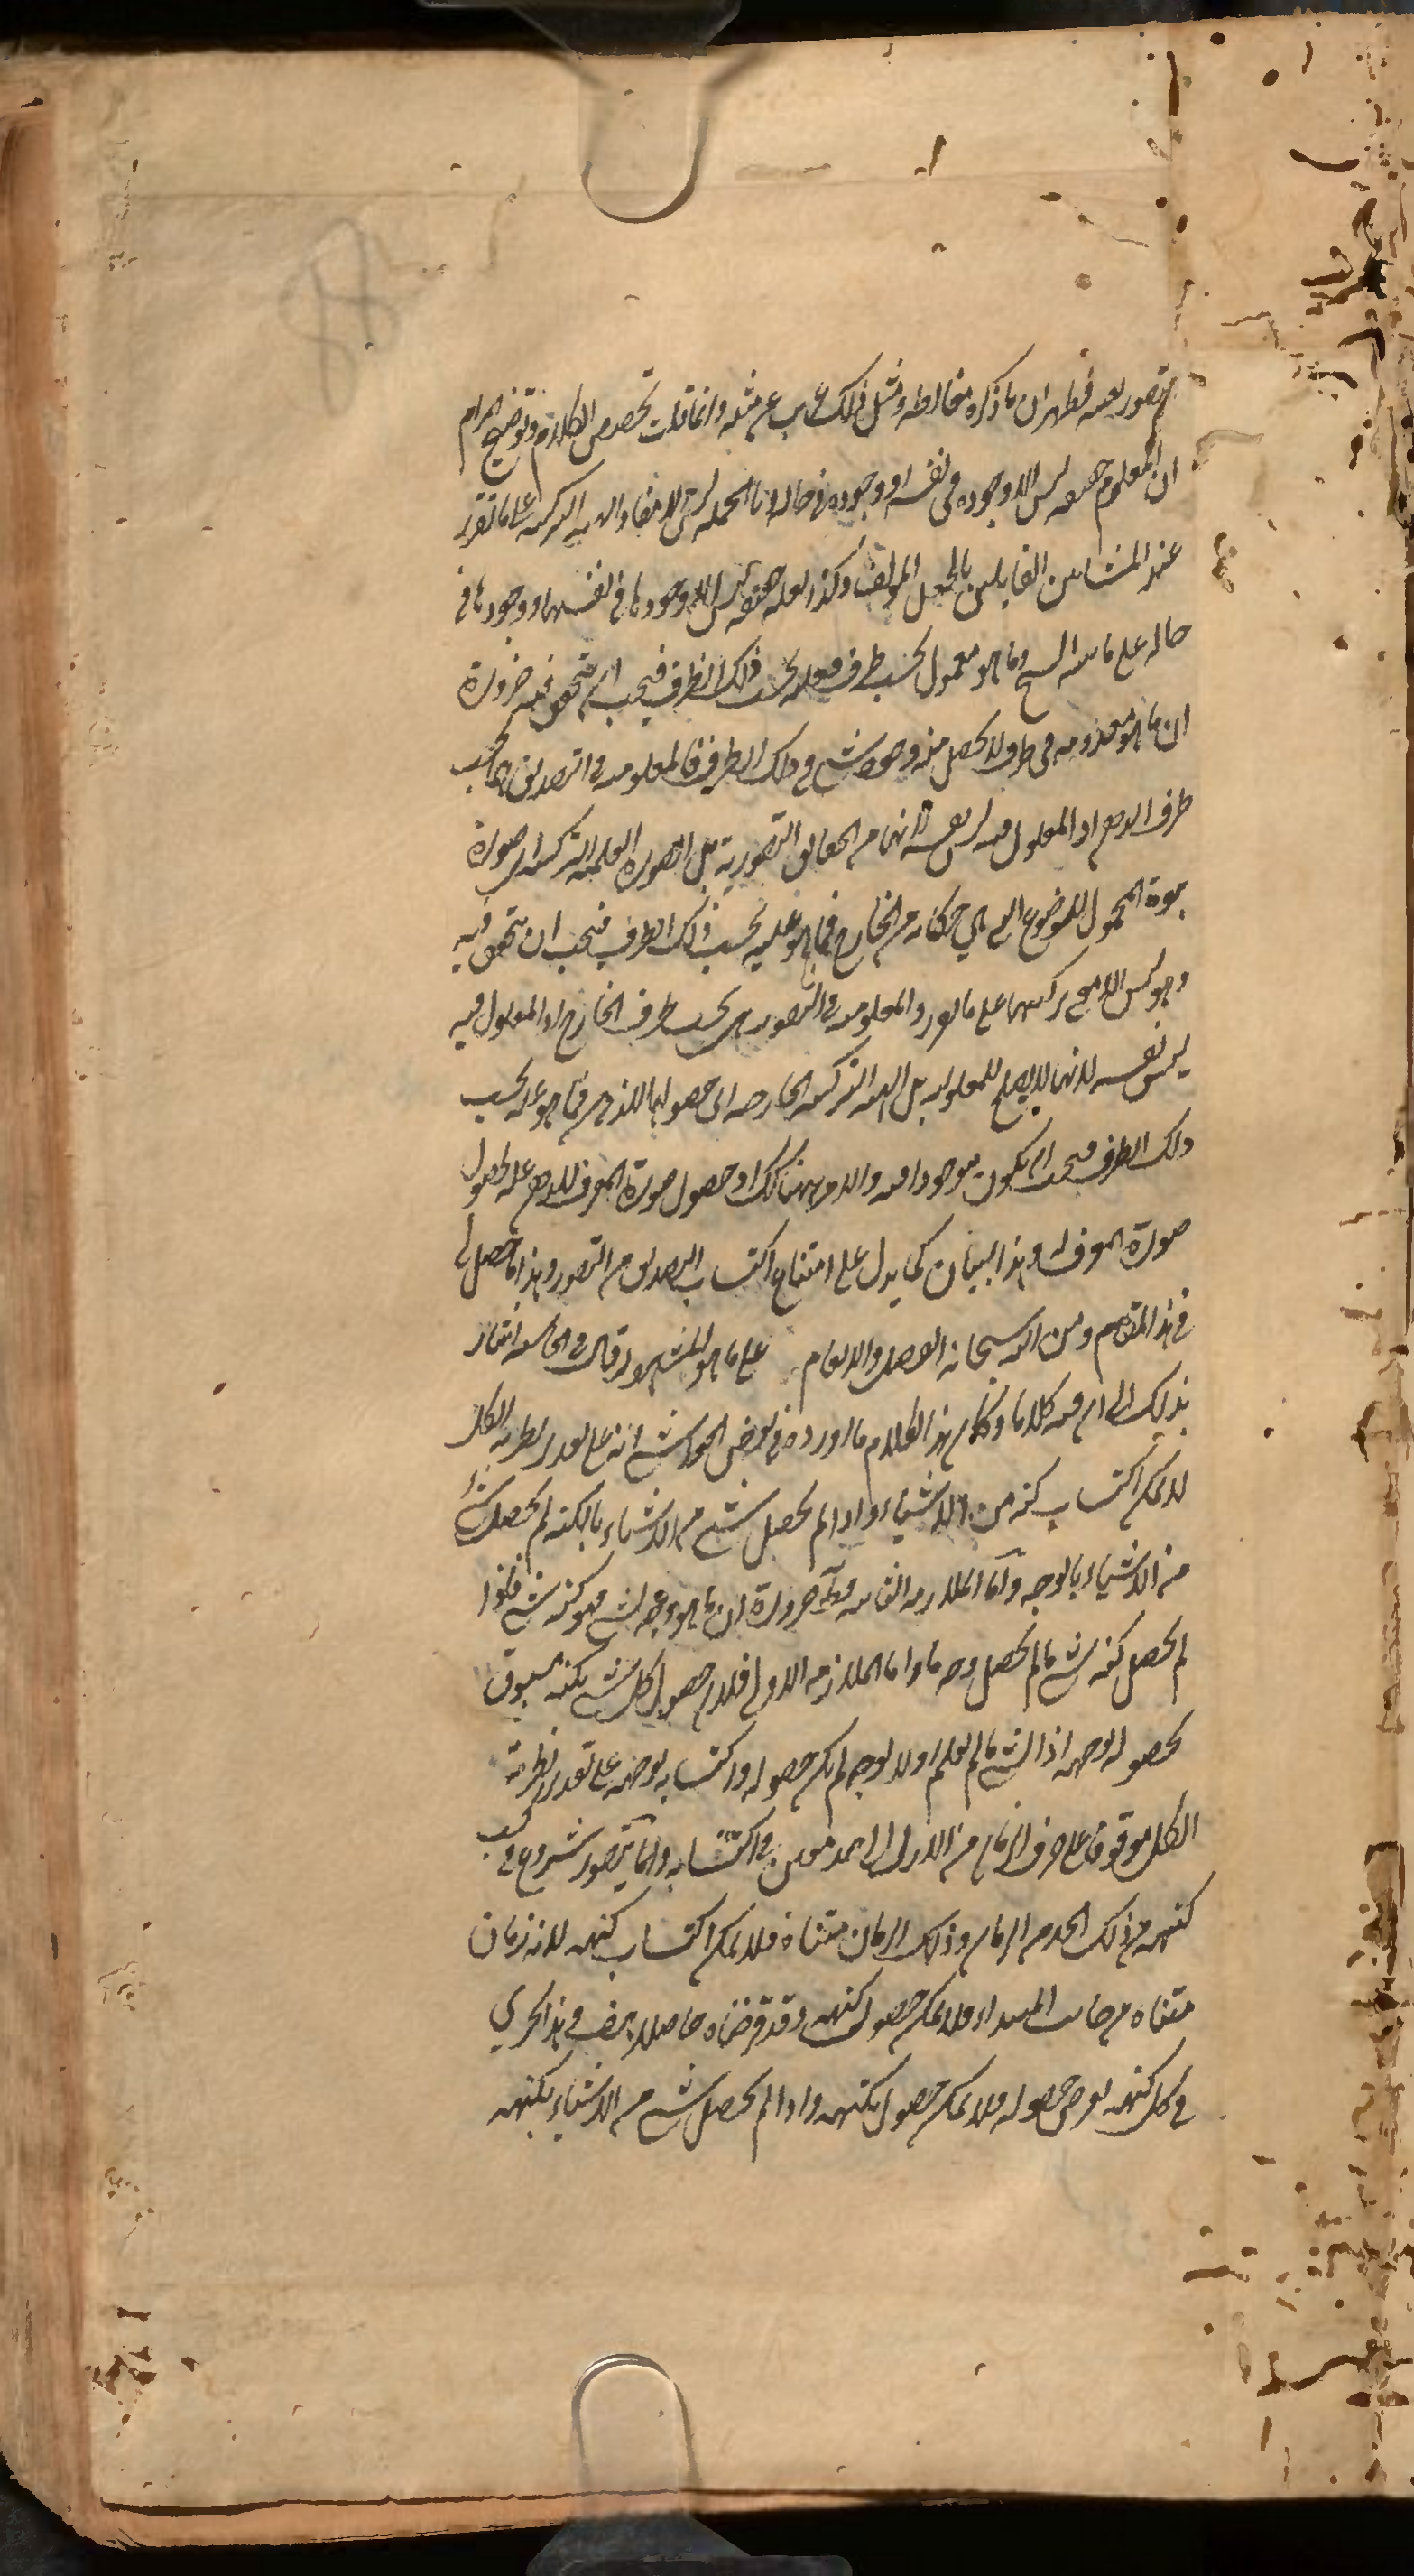 يتصور بعينه فظهر ان ما ذكره مغالطة ومثل ذلك عجيب عن مثله وانما قلت تخصيص الكلام وتوضيح المرام
ان المعلوم حقيقة ليس الا وجوده في نفسه او وجوده في حاله وبالجملة ليس الا مفاد الهيئة التركيبية على ما تقرر
عند المشائين القايلين بالجعل المولف وكذا العلة حقيقة ليس الا وجودها في انفسها او وجودها في
حاله على ما بينه الشيخ وما هو معمول بحسب ظرف فعلته بحسب ذلك الظرف فيجب ان يتحقق فيه ضرورة
ان ما هو معدوم في ظرف لا يحصل منه وجود شيء في ذلك الظرف فالمعلومية في التصديق بحسب
ظرف الواقع اذ المعلول فيه ليس نفسه لانها من الحقايق التصورية بل الصورة العلمية التركيبية اي صورة
ثبوت المحمول للموضوع التي هي حكاية من الخارج فما هو علته بحسب ذلك الظرف فيجب ان يتحقق فيه
وهو ليس الا مع تركيبها على ما تقرر والمعلومية في التصور بحسب ظرف الخارج اذ المعلول فيه
ليس نفسه لانها لا يصلح للمعلولية بل الهيئة التركيبية الخارجية اي حصولها للذهن فما هو علة بحسب
ذلك الظرف فيجب ان يكون موجودا فيه والامر ههنا كذلك اذ حصول صورة المعرف للذهن علة لحصول
صورة المعرف له وهذا البيان كما يدل على امتناع اكتساب التصديق من التصور وهذا ما حصل لي
في هذا المقام ومن الله سبحانه الفضل والانعام على ما هو المشهور قال في الحاشية اشار
بذلك الى ان فيه كلاما وكان هذا الكلام ما اورده في بعض الحواشي انه على تقدير نظرية الكل
لا يمكن اكتساب كنه من الاشياء واذا لم يحصل شيء من الاشياء بالكنه لم يحصل شيء
من الاشياء بالوجه واما الملازمة الثانية فظاهر ضرورة ان ما هو وجه لشيء فهو كنه شيء فلو
لم يحصل كنه شيء ما لم يحصل وجه ما واما الملازمة الاولى فلان حصول كل شيء بكنهه مسبوق
بحصوله بوجهه اذ الشيء ما لم يعلم اولا بوجه لم يكن حصوله واكتسابه بوجهه على تقدير نظرية
الكل موقوف على صرف الزمان من الازل الى حد معين في اكتسابه وانما يتصور شروع في كسب
كنهه من ذلك الحد من الزمان وذلك الزمان متناه فلا يمكن اكتساب كنهه لانه زمان
متناه من جانب المبداء فلا يمكن حصول كنهه وقد فرضناه حاصلا هف وهذا يجري
في كل كنهه يفرض حصوله فلا يمكن حصول بكنهه واذا لم يحصل شيء من الاشياء بكنهه